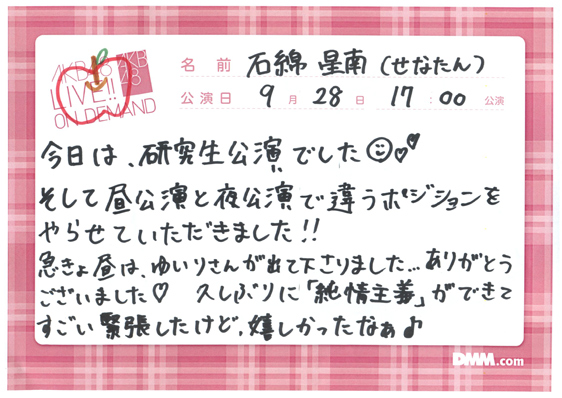 AKB48 AKB48
LIVE!!
ON DEMAND
名前 石綿 星南（せなたん）
公演日 9月28日 17:00公演
今日は、研究生公演でした
そして昼公演と夜公演で違うポジションを
やらせていただきました!!
急きょ昼は、ゆいりさんが出て下さりました…ありがとう
ございました♡ 久しぶりに「純情主義」ができて
すごい緊張したけど、嬉しかったなぁ♪
DMM.com